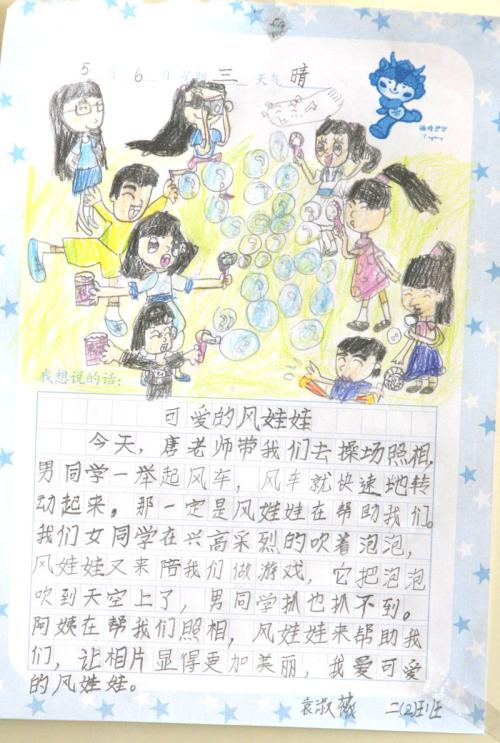 5月6日 星期三 天气晴
福娃
我想说的话:
可爱的风娃娃
今天，唐老师带我们去操场照相，
男同学一举起风车，风车就快速地转
动起来。那一定是风娃娃在帮助我们。
我们女同学在兴高采烈的吹着泡泡，
风娃娃又来陪我们做游戏，它把泡泡
吹到天空上了，男同学扒也扒不到。
阿姨在帮我们照相，风娃娃来帮助我
们，让相片显得更加美丽，我爱可爱
的风娃娃。
袁淑薇 二(2)班